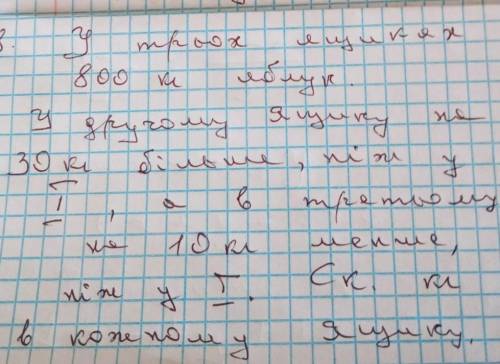 3. У трьох ящиках
800 кг яблук.
У другому ящику на
30 кг більше, ніж у
I, а в третьому
на 10 кг менше,
ніж у I. Ск. кг
в кожному ящику.